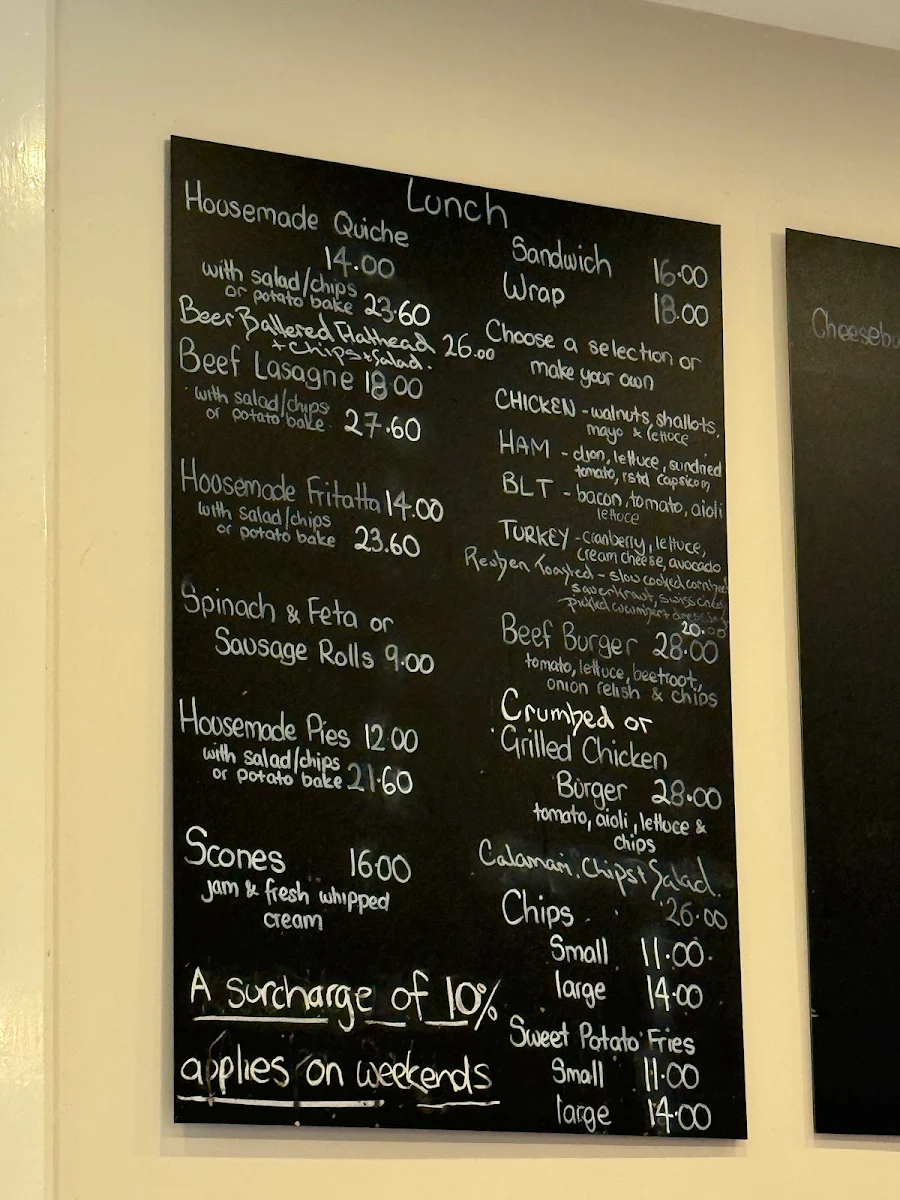 Lunch
Housemade Quiche
14.00
with salad/chips
or potato bake 23.60
Beer Battered Flathead
+ Chips + Salad. 26.00
Beef Lasagne 18.00
with salad/chips
or potato bake 27.60
Housemade Fritatta 14.00
with salad/chips
or potato bake 23.60
Spinach & Feta or
Sausage Rolls 9.00
Housemade Pies 12.00
with salad/chips
or potato bake 21.60
Scones 16.00
jam & fresh whipped
cream
A surcharge of 10%
applies on weekends
Sandwich 16.00
Wrap 18.00
Choose a selection or
make your own
CHICKEN - walnuts, shallots,
mayo & lettuce
HAM - dijon, lettuce, sundried
tomato, rstd capsicum
BLT - bacon, tomato, aioli
lettuce
TURKEY - cranberry, lettuce,
cream cheese, avocado
Reuben Toasted - slow cooked
sauerkraut, swiss
pickled
20.00
Beef Burger 28.00
tomato, lettuce, beetroot,
onion relish & chips
Crumbed or
Grilled Chicken
Burger 28.00
tomato, aioli, lettuce &
chips
Calamari, Chips + Salad.
26.00
Chips
Small 11.00
large 14.00
Sweet Potato Fries
Small 11.00
large 14.00
Cheesebu